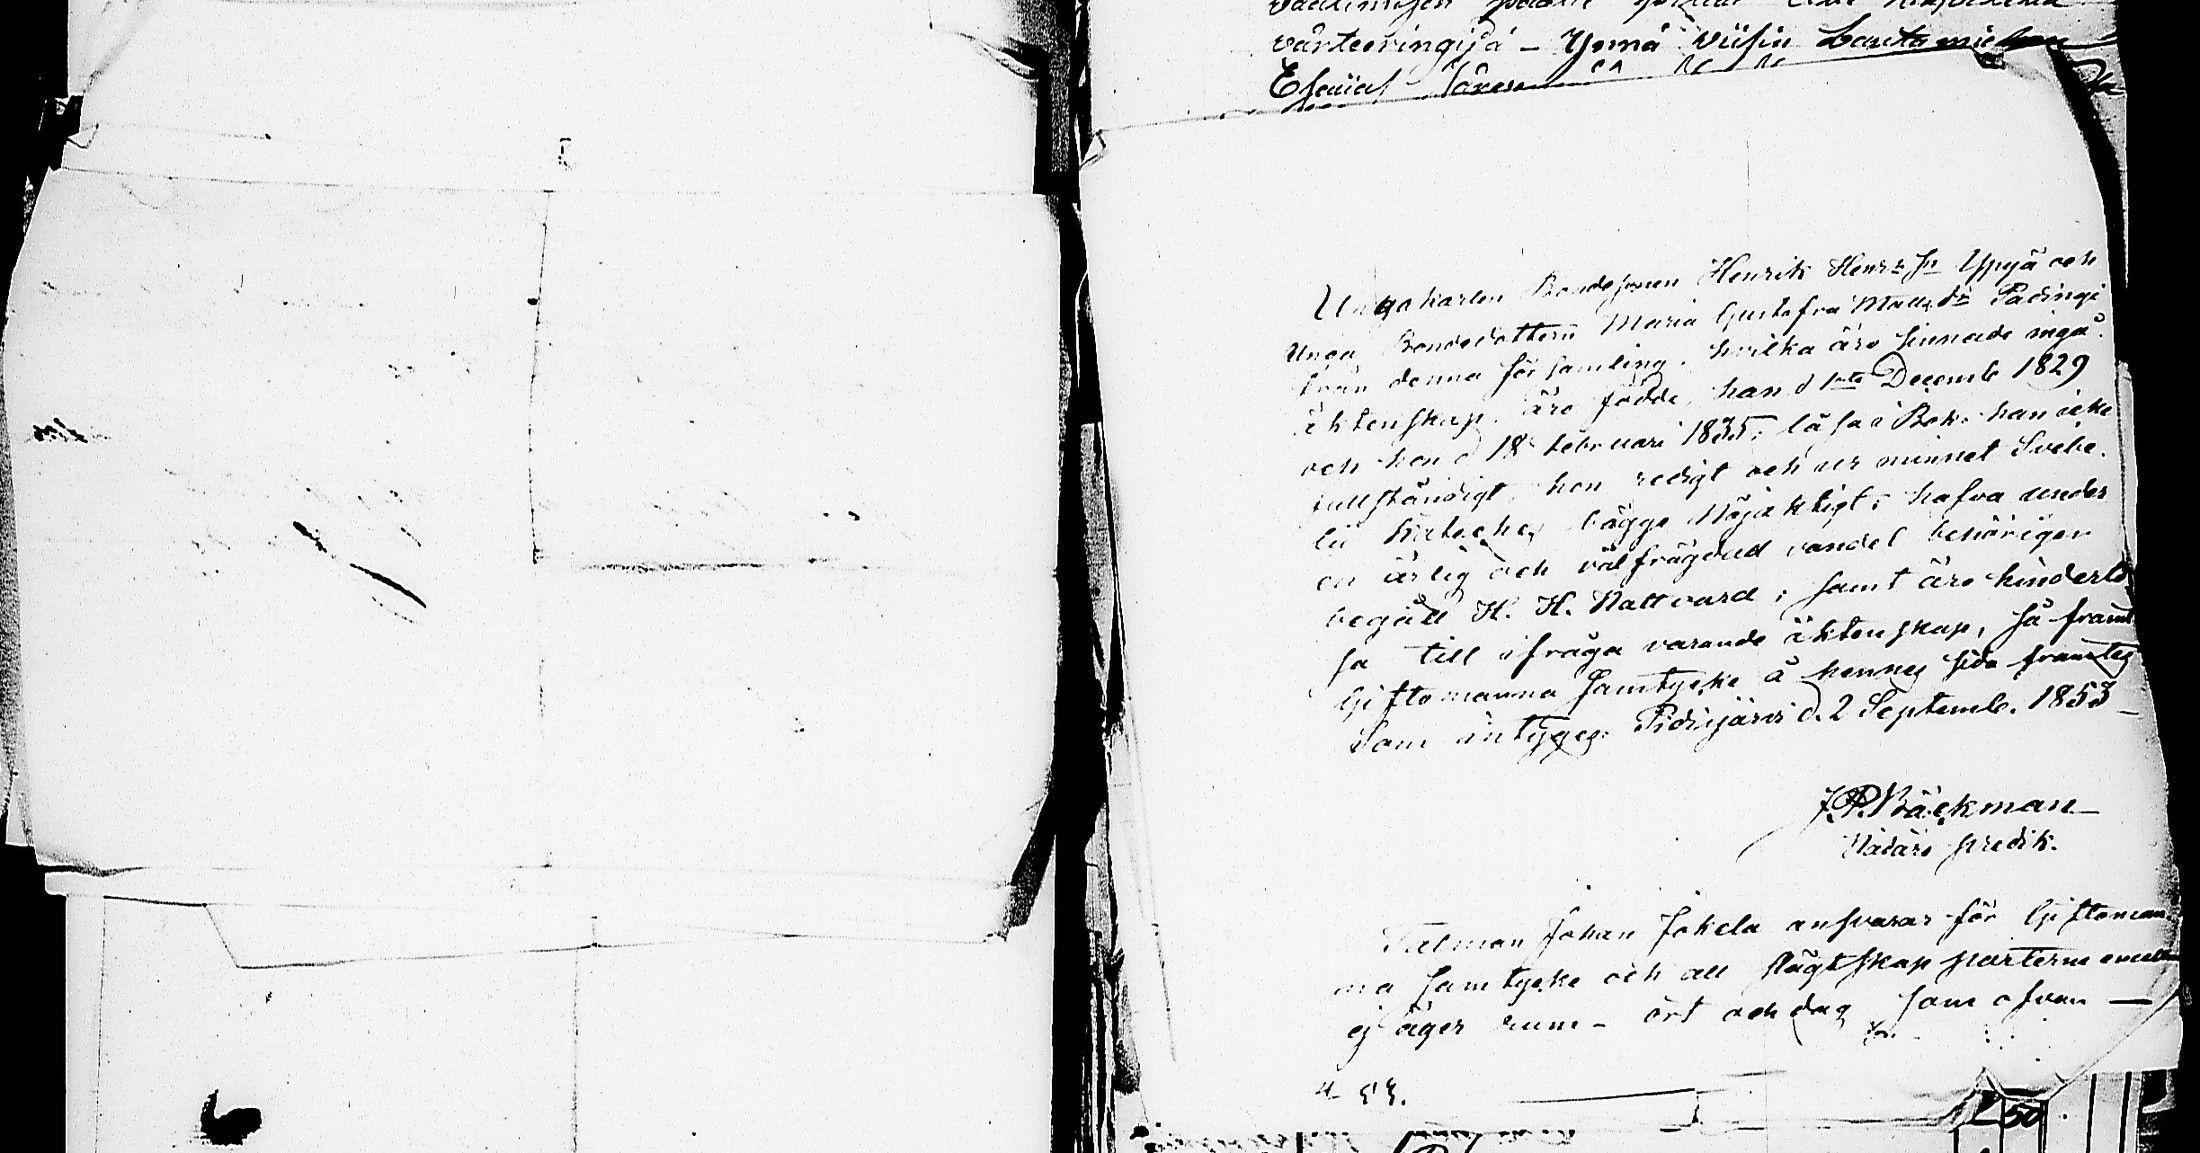 värteeringisä - Ynnä
Unga karlen Bondesonen Henrik Henr:sn Yppjä och
Unga Bondedottern Maria Gustafva Matts dr Padingi
från denna församling, hvilka äro sinnade ingå
äktenskap, äro födde, han d 1sta Decemb 1829
och hon d 18 Februari 1835; läsa i Bok: han icke
fullständigt, hon redigt och ur minnet Svebe-
lii Kateches bägge Nöjaktigt; hafva under
en ärlig och välfrägdad vandel behörigen
begått H. H. Nattvard; samt äro hinderlö-
sa till ifråga varande äktenskap, så framt
Giftomanna samtycke å hennes sida framtes
Som intygas. Pidisjärvi d. 2 Septemb. 1853
J.P. Bäckman
predik.
Johan Jokela ansvarar för Giftoman-
na samtycke och att slägtskap parterne emellan
ej äger rum - ort och dag som ofvan
50